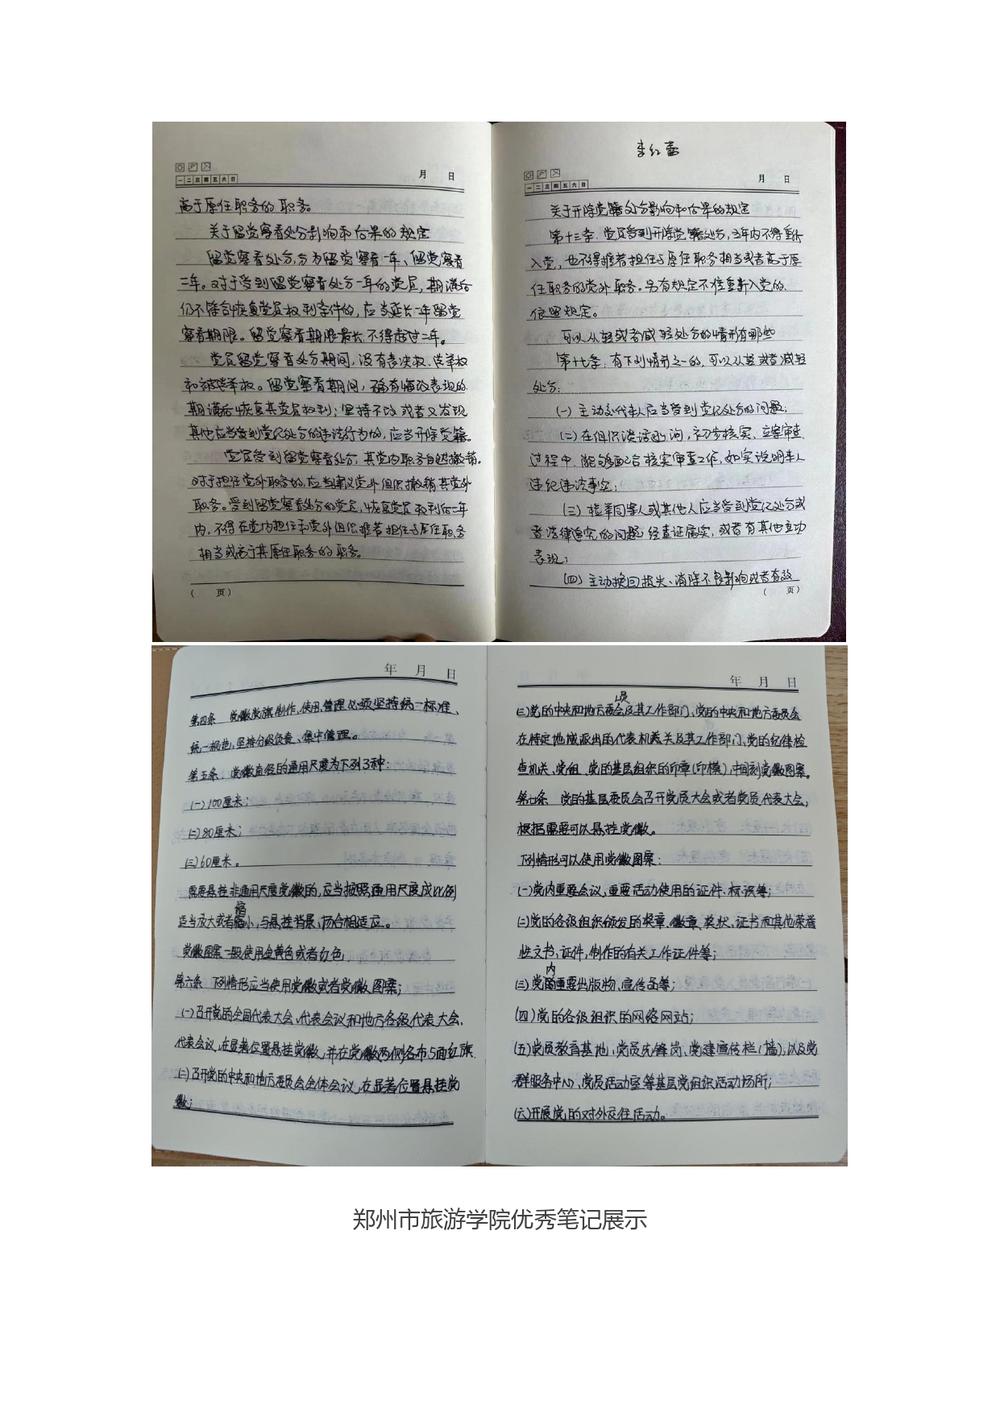 月 日
一二三四五六日
高于原任职务的职务。
关于留党察看处分影响和后果的规定
留党察看处分,分为留党察看一年、留党察看
二年。对于受到留党察看处分一年的党员,期满后
仍不符合恢复党员权利条件的,应当延长一年留党
察看期限。留党察看期限最长不得超过二年。
党员留党察看处分期间,没有表决权、选举权
和被选举权。留党察看期间,确有悔改表现的
期满后恢复其党员权利;坚持不改或者又发现
其他应当受到党纪处分的违法行为的,应当开除党籍。
党员受到留党察看处分,其党内职务自然撤销。
对于担任党外职务的,应当建议党外组织撤销其党外
职务。受到留党察看处分的党员,恢复党员权利后二年
内,不得在党内担任和党外组织推荐担任与原任职务
相当或高于其原任职务的职务。
( 页)
李红蕾
月 日
一二三四五六日
关于开除党籍处分影响和后果的规定
第十三条:党员受到开除党籍处分,五年内不得重新
入党,也不得推荐担任与原任职务相当或者高于原
任职务的党外职务。另有规定不准重新入党的,
依照规定。
可以从轻或者减轻处分的情形有哪些
第十七条:有下列情形之一的,可以从轻或者减轻
处分:
(一)主动交代本人应当受到党纪处分的问题;
(二)在组织谈话函询,初步核实、立案审查
过程中,能够配合核实审查工作,如实说明本人
违纪违法事实;
(三)检举同案人或其他人应当受到党纪处分或
者法律追究的问题,经查证属实,或者有其他立功
表现;
(四)主动挽回损失、消除不良影响或者有效
( 页)
年 月 日
第四条 党徽党旗制作、使用、管理必须坚持统一标准、
统一规范,坚持分级负责、集中管理。
第五条 党徽直径的通用尺度为下列3种:
(一)100厘米;
(二)80厘米;
(三)60厘米。
需要悬挂非通用尺度党徽的,应当按照通用尺度成比例
适当放大或者缩小,与悬挂背景、场合相适应。
党徽图案一般使用金黄色或者红色;
第六条 下列情形应当使用党徽或者党徽图案;
(一)召开党的全国代表大会、代表会议和地方各级代表大会、
代表会议,在显著位置悬挂党徽,并在党徽两侧各布5面红旗
(二)召开党的中央和地方委员会全体会议,在显著位置悬挂党
徽;
年 月 日
(三)党的中央和地方委员会及其工作部门、党的中央和地方委员会
在特定地域派出的代表机关及其工作部门、党的纪律检
查机关、党组、党的基层组织的印章(印模),中间刻党徽图案。
第七条 党的基层委员会召开党员大会或者党员代表大会,
根据需要可以悬挂党徽。
下列情形可以使用党徽图案:
(一)党内重要会议、重要活动使用的证件、标识等;
(二)党的各级组织颁发的奖章、徽章、奖状、证书和其他荣誉
性文书,证件,制作的有关工作证件等;
(三)党内重要出版物、宣传品等;
(四)党的各级组织的网络网站;
(五)党员教育基地,党员先锋岗、党建宣传栏(墙),以及党
群服务中心、党员活动室等基层党组织活动场所;
(六)开展党的对外交往活动。
郑州市旅游学院优秀笔记展示